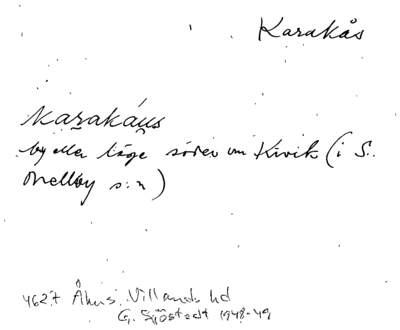 Karakås
Karakáus
by eller läge söder om Kivik (i S.
Mellby s:n)
4627 Åhus, Villands hd
G. Sjöstedt 1948-49